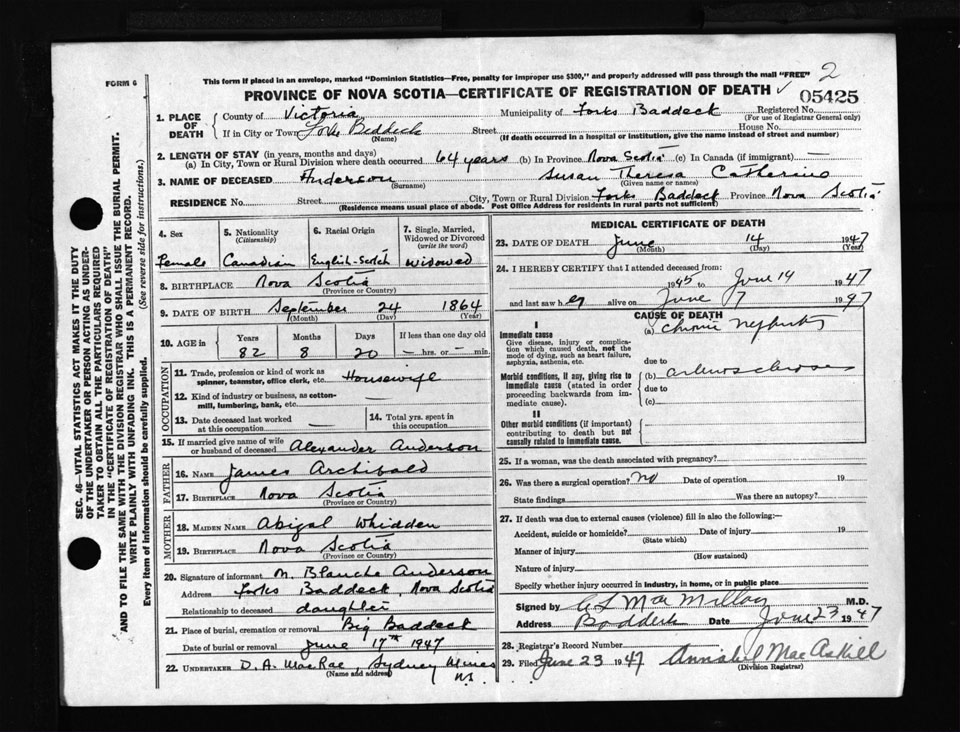 FORM 6
This form if placed in an envelope, marked "Dominion Statistics—Free, penalty for improper use $300," and properly addressed will pass through the mail "FREE"
2
PROVINCE OF NOVA SCOTIA—CERTIFICATE OF REGISTRATION OF DEATH
05425
1. PLACE OF DEATH
County of Victoria Municipality of Forks Baddeck Registered No.
(For use of Registrar General only)
If in City or Town Forks Beddeck Street House No.
(Name) (If death occurred in a hospital or institution, give the name instead of street and number)
2. LENGTH OF STAY (in years, months and days)
(a) In City, Town or Rural Division where death occurred 64 years (b) In Province Nova Scotia (c) In Canada (if immigrant) —
3. NAME OF DECEASED Anderson Susan Theresa Catherine
(Surname) (Given name or names)
RESIDENCE No. Street City, Town or Rural Division Forks Baddeck Province Nova Scotia
(Residence means usual place of abode. Post Office Address for residents in rural parts not sufficient)
4. Sex
Female
5. Nationality
(Citizenship)
Canadian
6. Racial Origin
English-Scotch
7. Single, Married, Widowed or Divorced
(write the word)
Widowed
8. BIRTHPLACE Nova Scotia
(Province or Country)
9. DATE OF BIRTH September 24 1864
(Month) (Day) (Year)
10. AGE in
Years Months Days If less than one day old
82 8 20 — hrs. or — min.
OCCUPATION
11. Trade, profession or kind of work as
spinner, teamster, office clerk, etc. Housewife
12. Kind of industry or business, as cotton-
mill, lumbering, bank, etc. —
13. Date deceased last worked
at this occupation —
14. Total yrs. spent in
this occupation
15. If married give name of wife
or husband of deceased Alexander Anderson
FATHER
16. NAME James Archibald
17. BIRTHPLACE Nova Scotia
(Province or Country)
MOTHER
18. MAIDEN NAME Abigal Whidden
19. BIRTHPLACE Nova Scotia
(Province or Country)
20. Signature of informant M. Blanche Anderson
Address Forks Baddeck, Nova Scotia
Relationship to deceased daughter
21. Place of burial, cremation or removal Big Baddeck
Date of burial or removal June 17th 1947
22. UNDERTAKER D. A. MacRae, Sydney Mines
(Name and address) N.S.
MEDICAL CERTIFICATE OF DEATH
23. DATE OF DEATH June 14 1947
(Month) (Day) (Year)
24. I HEREBY CERTIFY that I attended deceased from:
1945 to June 14 1947
and last saw h er alive on June 7 1947
CAUSE OF DEATH
I
Immediate cause
Give disease, injury or complica-
tion which caused death, not the
mode of dying, such as heart failure,
asphyxia, asthenia, etc.
(a) Chronic Nephritis
due to
Morbid conditions, if any, giving rise to
immediate cause (stated in order
proceeding backwards from im-
mediate cause).
(b) arteriosclerosis
due to
(c)
II
Other morbid conditions (if important)
contributing to death but not
causally related to immediate cause.
25. If a woman, was the death associated with pregnancy?
26. Was there a surgical operation? no Date of operation 19
State findings Was there an autopsy?
27. If death was due to external causes (violence) fill in also the following:—
Accident, suicide or homicide? Date of injury 19
(State which)
Manner of injury
(How sustained)
Nature of injury
Specify whether injury occurred in industry, in home, or in public place
Signed by C L MacMillan M.D.
Address Baddeck Date June 23 1947
28. Registrar's Record Number
29. Filed June 23 1947 Annabel MacAskill
(Division Registrar)
SEC. 46—VITAL STATISTICS ACT MAKES IT THE DUTY
OF THE UNDERTAKER OR PERSON ACTING AS UNDER-
TAKER TO OBTAIN ALL THE PARTICULARS REQUIRED
IN THE "CERTIFICATE OF REGISTRATION OF DEATH"
AND TO FILE THE SAME WITH THE DIVISION REGISTRAR WHO SHALL ISSUE THE BURIAL PERMIT.
WRITE PLAINLY WITH UNFADING INK. THIS IS A PERMANENT RECORD.
Every item of information should be carefully supplied. (See reverse side for instructions.)